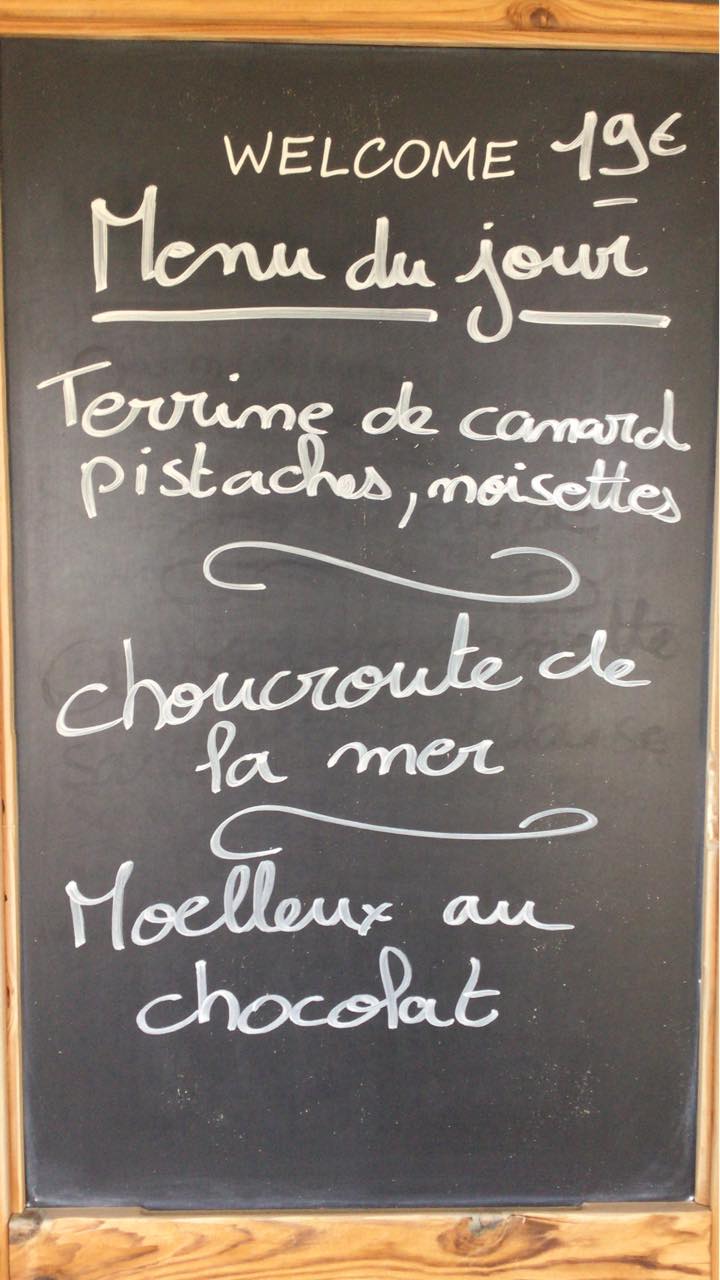 WELCOME 19€
Menu du jour
Terrine de canard
pistaches, noisettes
choucroute de
la mer
Moelleux au
chocolat